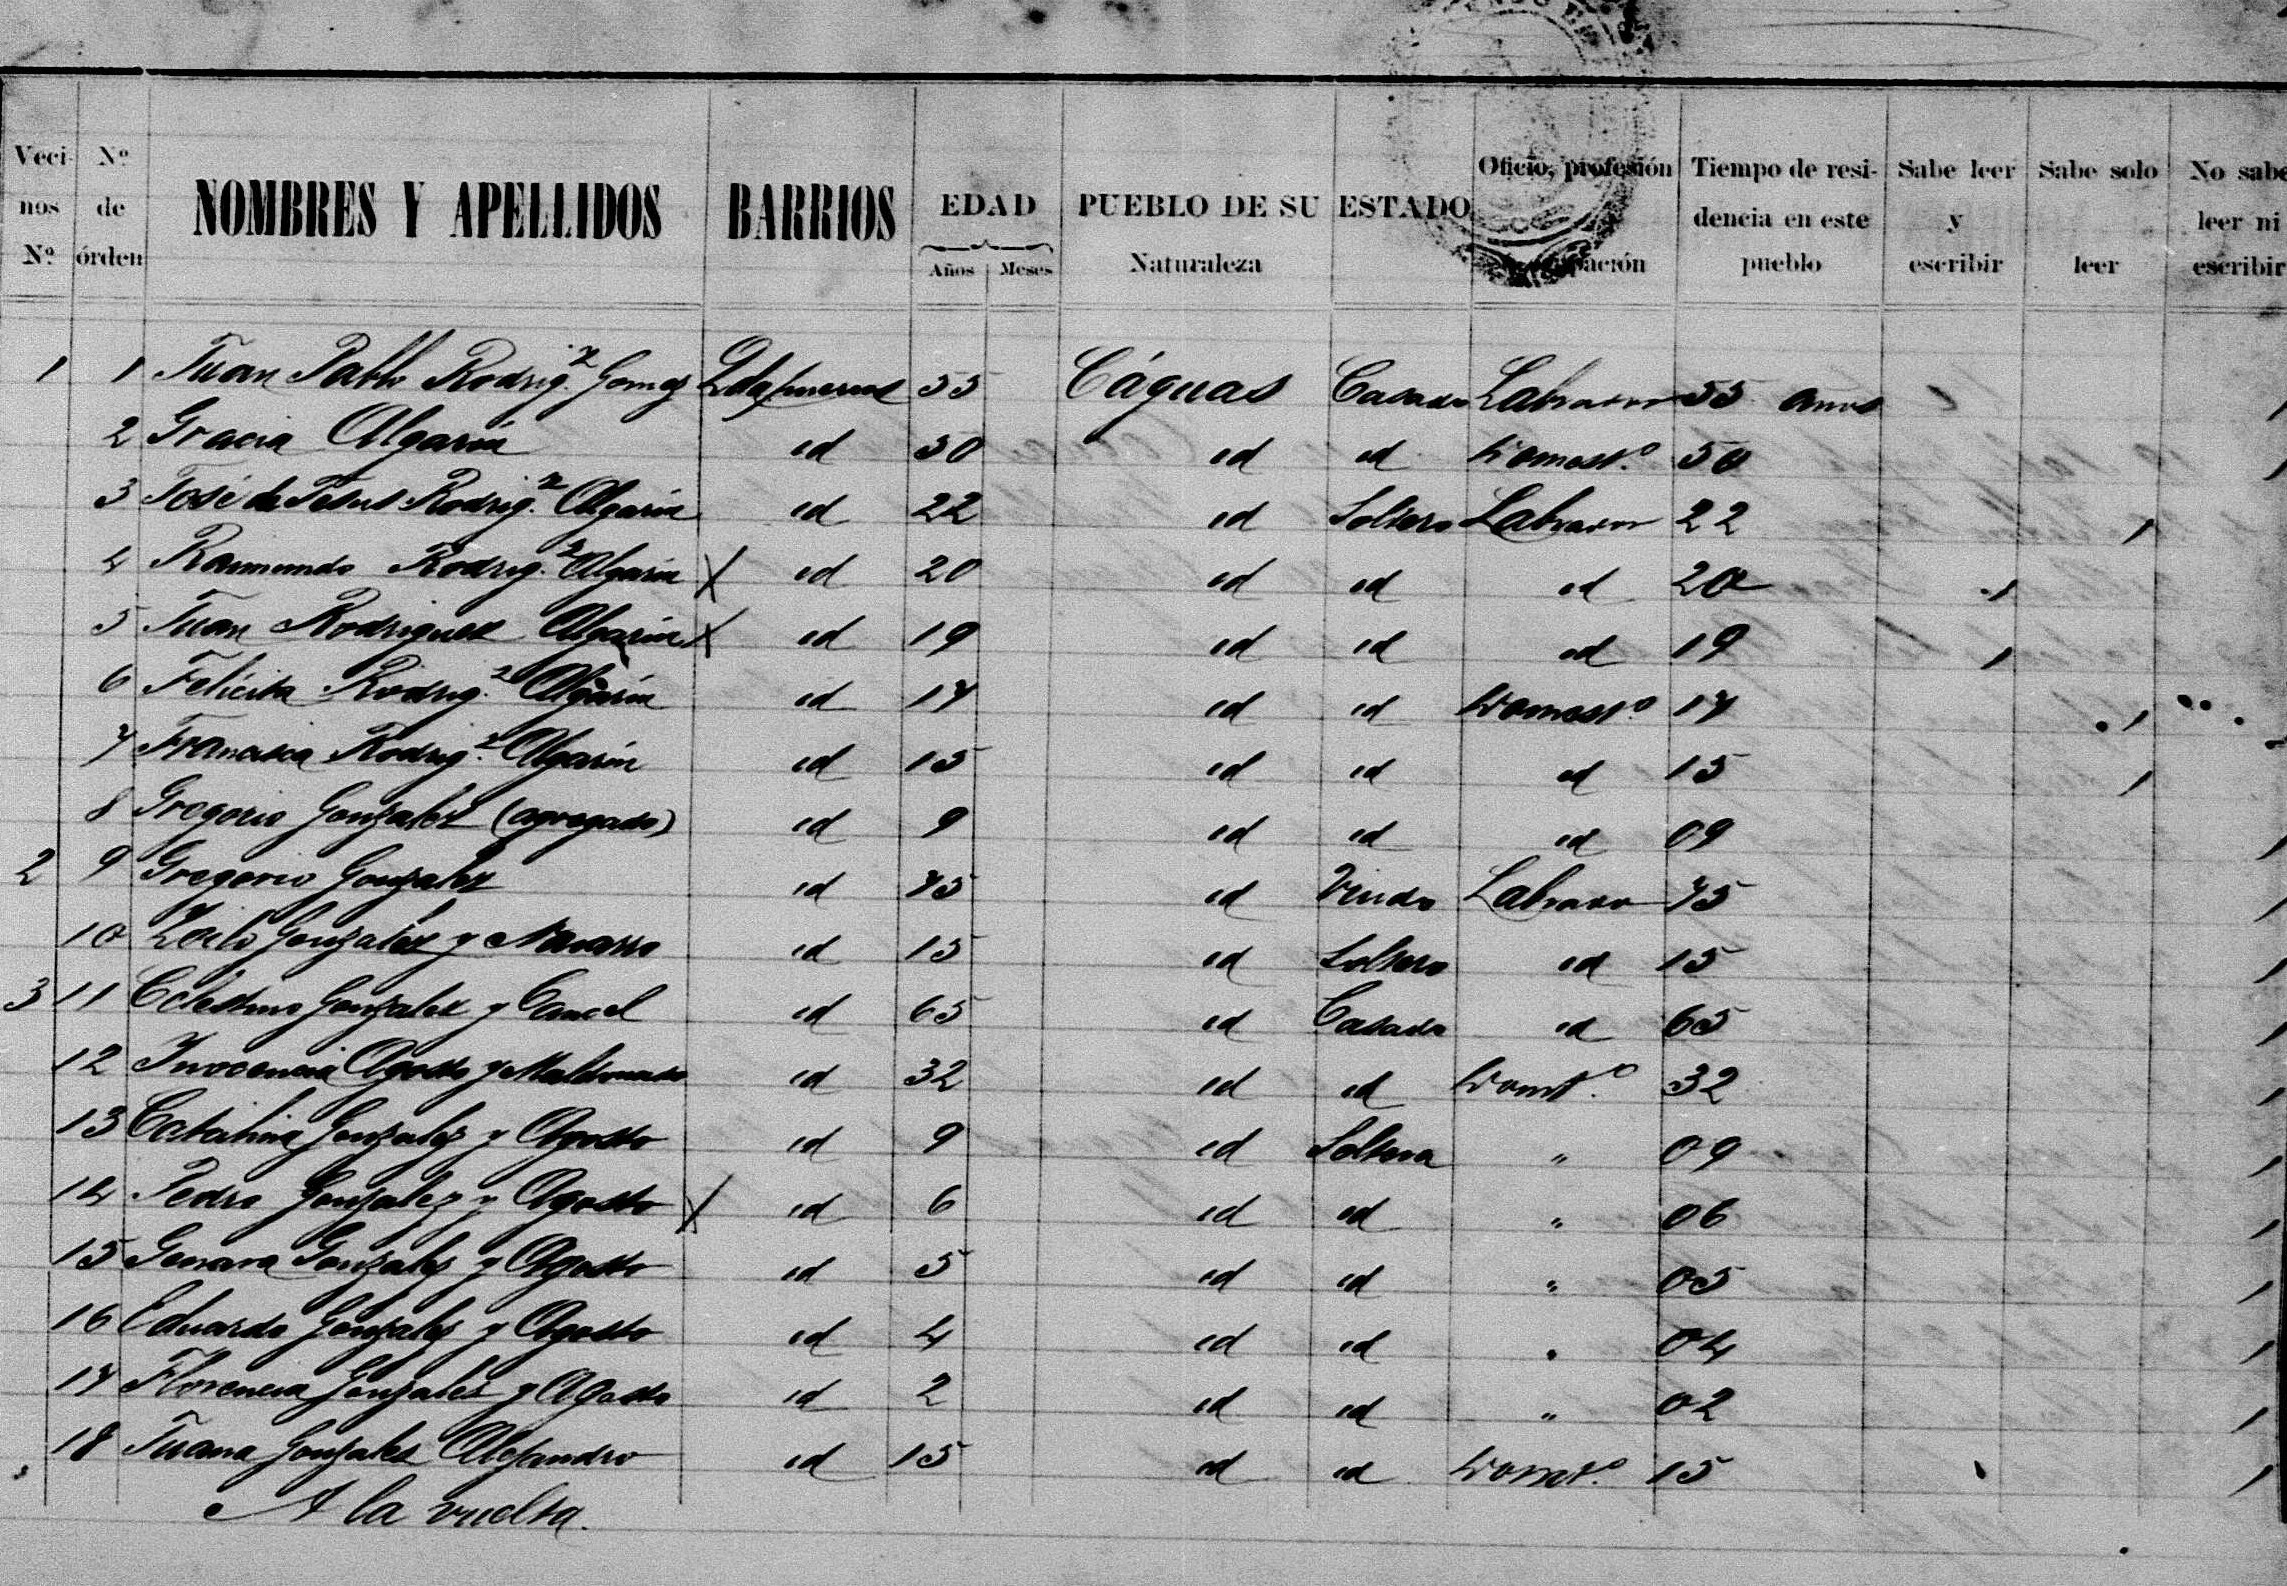 Veci- nos Nº | Nº de órden | NOMBRES Y APELLIDOS | BARRIOS | EDAD Años Meses | PUEBLO DE SU Naturaleza | ESTADO | Oficio, profesión | Tiempo de resi- dencia en este pueblo | Sabe leer y escribir | Sabe solo leer | No sabe leer ni escribir
1 1 Juan Pablo Rodrig.z Gomez 55 Cáguas Casado Labrador 55 años
2 Gracia Algarin id 50 id id Domest.o 50
3 José de Jesus Rodrig.z Algarin id 22 id Soltero Labrador 22
4 Raimundo Rodrig.z Algarin X id 20 id id id 20
5 Juan Rodriguez Algarin X id 19 id id id 19
6 Felicita Rodrig.z Algarin id 17 id id Domest.o 17
7 Francisca Rodrig.z Algarin id 15 id id id 15
8 Gregorio Gonzalez (agregado) id 9 id id id 09
2 9 Gregorio Gonzalez id 75 id Viudo Labrador 75
10 Zoilo Gonzalez y Navarro id 15 id Soltero id 15
3 11 Celestino Gonzalez y Cancel id 65 id Casado id 65
12 Inocencia Agosto y Maldonado id 32 id id Domt.o 32
13 Catalina Gonzalez y Agosto id 9 id Soltera " 09
14 Pedro Gonzalez y Agosto X id 6 id id " 06
15 Genara Gonzalez y Agosto id 5 id id " 05
16 Eduardo Gonzalez y Agosto id 4 id id " 04
17 Florencia Gonzalez y Agosto id 2 id id " 02
18 Juana Gonzalez Alejandro id 15 id id Domt.o 15
A la vuelta.